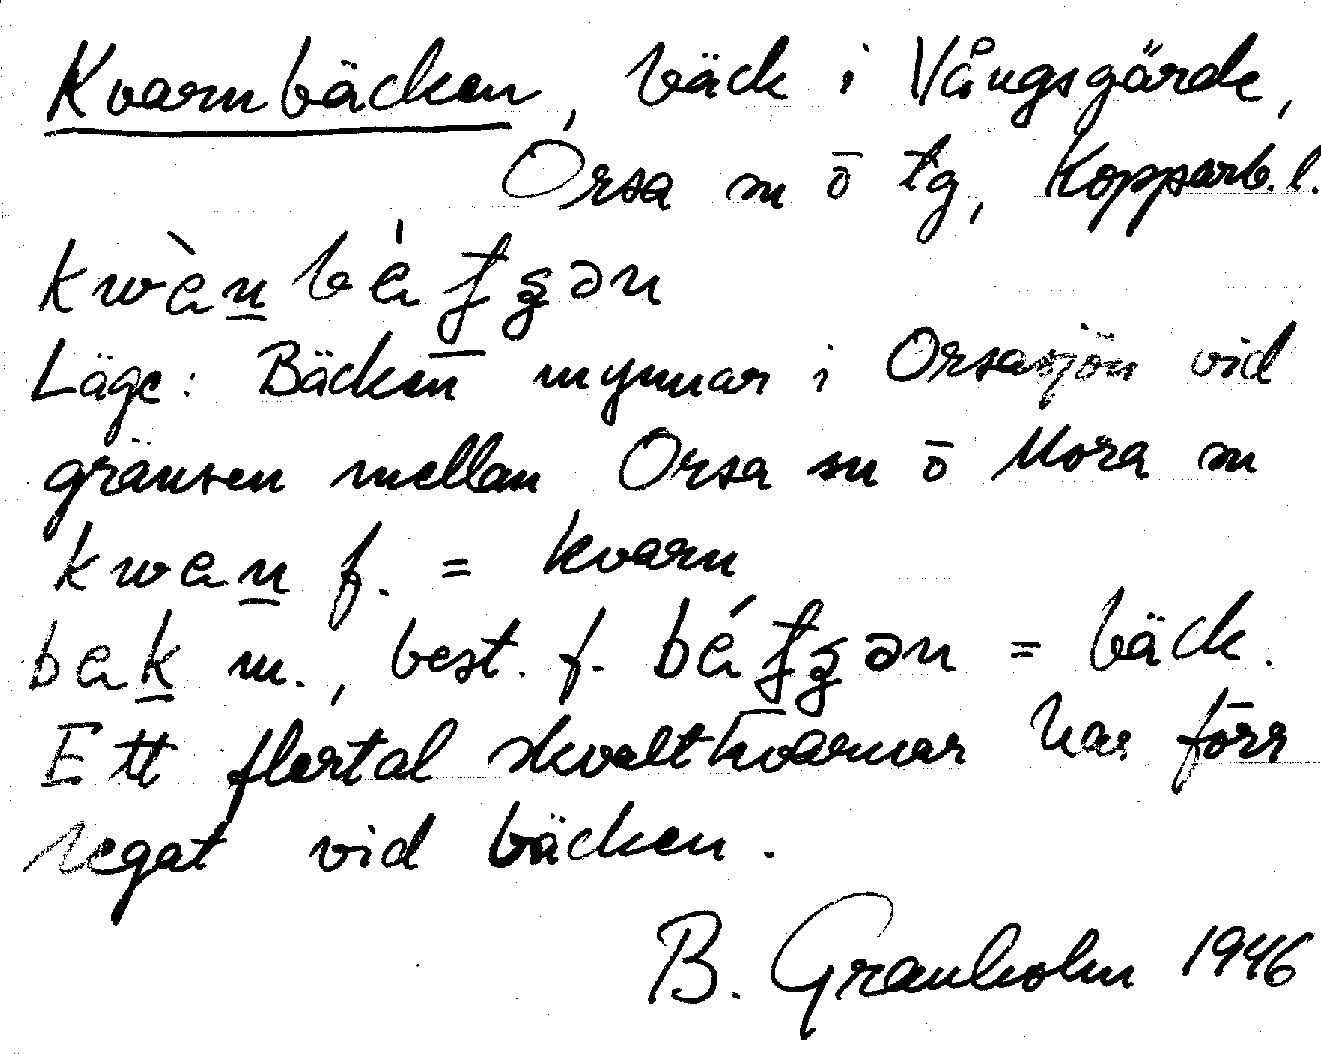 Kvarnbäcken, bäck i Vångsgärde,
Orsa sn ō tg, Kopparb. l.
Läge: Bäcken mynnar i Orsasjön vid
gränsen mellan Orsa sn ō Mora sn
f. = kvarn
m., best. f. = bäck.
Ett flertal skvaltkvarnar har förr
legat vid bäcken.
B. Granholm 1946